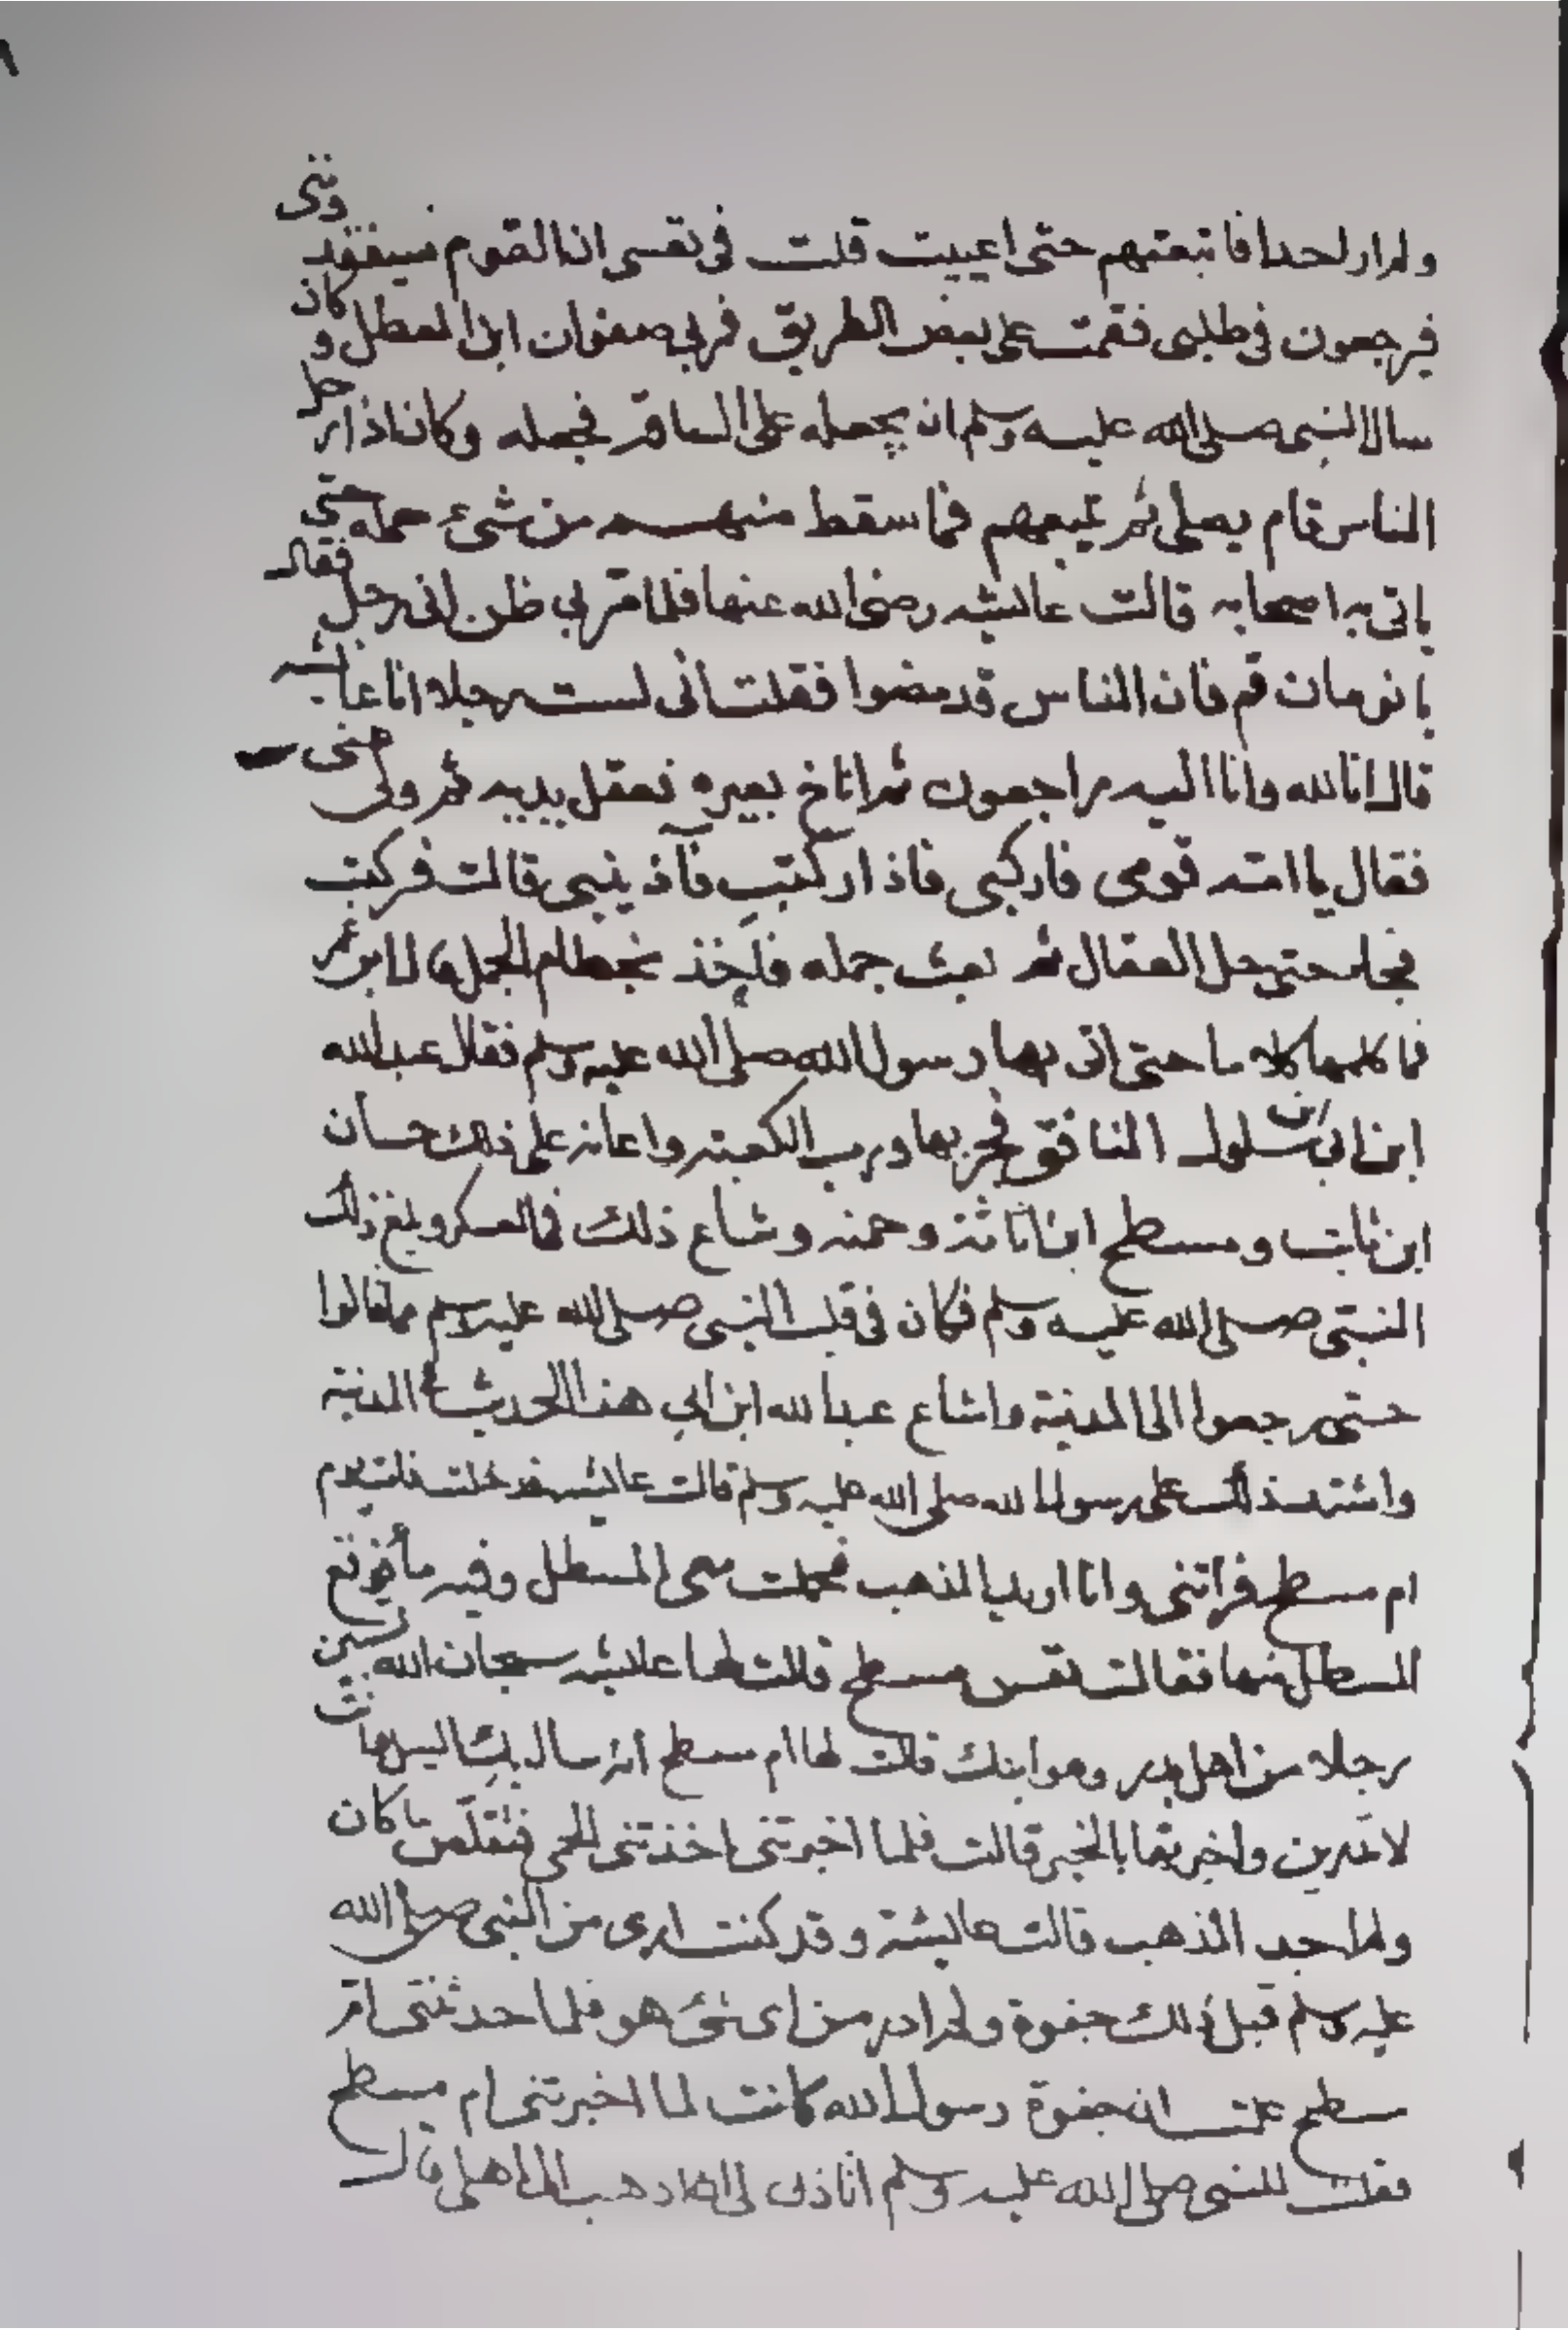 ولم ار احدا فاتبعتهم حتى اعييت قلت في نفسي ان القوم سيفقدوننى
فيرجعون في طلبى فقمت على بعض الطريق فمر بي صفوان ابن المعطل وكان
سال النبي صلى الله عليه وسلم ان يجعله على الساقة فجعله وكان اذا رحل
الناس قام يصلى ثم تبعهم فما سقط منهم من شئ حمله حتى
ياتى به اصحابه قالت عائشه رضى الله عنها فلما مر بي ظن انى رجل فقال
يا نومان قم فان الناس قد مضوا فقلت انى لست رجلا انا عايشه
قال انا لله وانا اليه راجعون ثم اناخ بعيره فعقل يديه ثم ولى عنى
فقال يا امته قومى فاركبى فاذا ركبتِ فآذنينى قالت فركبت
فجاء حتى حل العقال ثم بعث جمله فاخذ بخطام الجمل قال ابن عمر
فما كلمها كلاما حتى اتى بها رسول الله صلى الله عليه وسلم فقال عبد الله
ابن ابى ابن سلول المنافق فجر بها ورب الكعبته واعانه على ذلك حسان
ابن ثابت ومسطح ابن اثاثة وحمنه وشاع ذلك في العسكر وبلغ ذلك
النبي صلى الله عليه وسلم فكان في قلب النبي صلى الله عليه وسلم مما قالوا
حتى رجعوا الى المدينة واشاع عبد الله ابن ابي هذا الحديث في المدينة
واشتد ذلك على رسول الله صلى الله عليه وسلم قالت عايشه فدخلت ذات يوم
ام مسطح فراتنى وانا اريد المذهب فحملت معى السطل وفيه ماء فوقع
السطل منها فقالت تعس مسطح قالت لها عايشه سبحان الله تسبين
رجلا من اهل بدر وهو ابنك قالت لها ام مسطح انه سال بك السيل وانت
لا تدرين واخبرتها بالخبر قالت فلما اخبرتنى اخذتنى الحمى فتقلص ما كان
ولم اجد المذهب قالت عايشة وقد كنت ارى من النبي صلى الله
عليه وسلم قبل ذلك جفوة ولم ادر من اى شئ هو فلما حدثتنى ام
مسطح علمت ان جفوة رسول الله كانت لما اخبرتنى ام مسطح
فقلت للنبي صلى الله عليه وسلم اتاذن لى ان اذهب الى اهلى قال